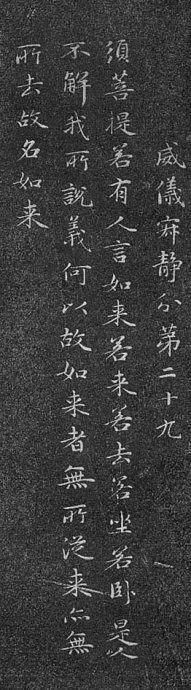 威儀寂靜分第二十九
須菩提若有人言如来若来若去若坐若卧是人
不解我所說義何以故如来者無所從来亦無
所去故名如来